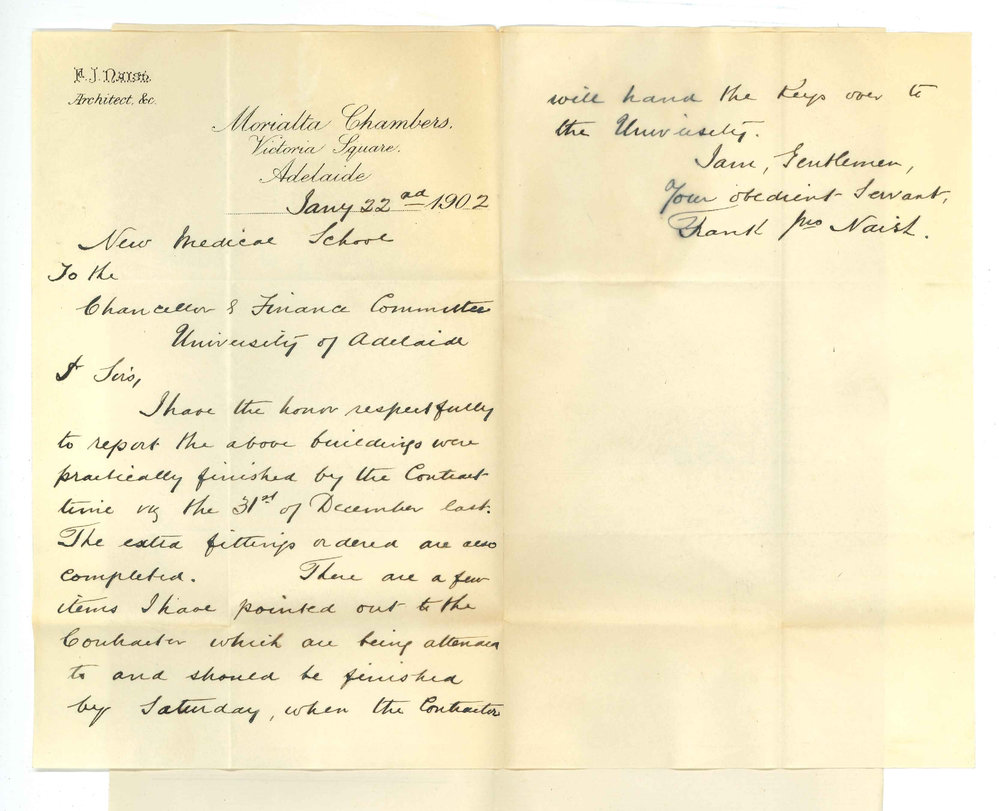 F. J. Naish,
Architect, &c.
Morialta Chambers,
Victoria Square,
Adelaide
Jany 22nd 1902
New Medical School
To the
Chancellor & Finance Committee
University of Adelaide
Sirs,
I have the honor respectfully
to report the above buildings were
practically finished by the Contract
time viz the 31st of December last.
The extra fittings ordered are also
completed. There are a few
items I have pointed out to the
Contractor which are being attended
to and should be finished
by Saturday, when the Contractor
will hand the Keys over to
the University.
I am, Gentlemen,
Your obedient Servant,
Frank Jno Naish.